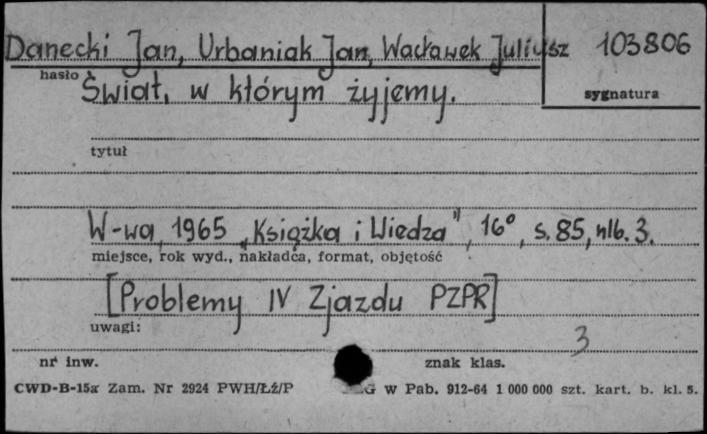 Danecki Jan, Urbaniak Jan, Wacławek Juliusz 103806
hasło sygnatura
Świat, w którym żyjemy.
tytuł
W-wa, 1965 „Książka i Wiedza", 16°, s. 85, nlb. 3.
miejsce, rok wyd., nakładca, format, objętość
[Problemy IV Zjazdu PZPR]
uwagi:
3
nr inw. znak klas.
CWD-B-15a Zam. Nr 2924 PWH/ŁŻ/P G W Pab. 912-64 1 000 000 szt. kart. b. kl. 5.